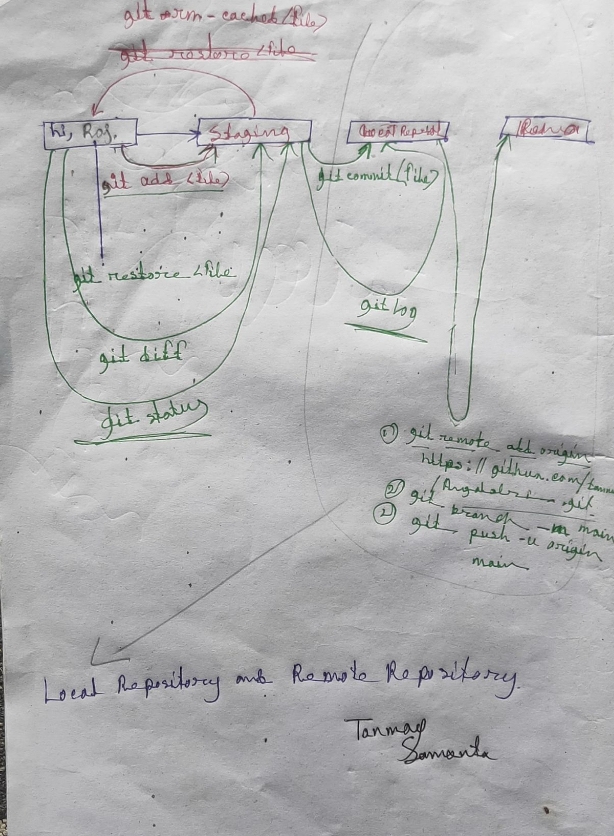 git rm -cached <file>
git restore <file
Staging
git add <file>
git commit <file>
git restore <file
git log
git diff
git status
1) git remote add origin
https://github.com/tanma
.git
2) git branch -m main
2) git push -u origin
main
Local Repository and Remote Repository.
Tanmay
Samanta